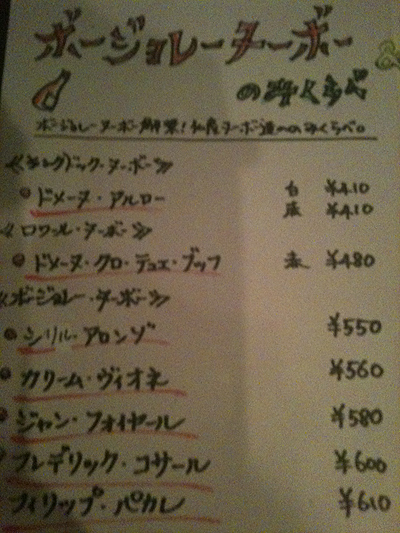 ボージョレーヌーボー
のみくらべ
ボージョレーヌーボー解禁!
《ラングドック・ヌーボー》
・ドメーヌ・アルロー 白 ¥410
¥410
《ロワール・ヌーボー》
・ドメーヌ・クロ・デュ・ブッフ 赤 ¥480
《ボージョレー・ヌーボー》
・シリル・アロンゾ ¥550
・カリーム・ヴィオネ ¥560
・ジャン・フォイヤール ¥580
フレデリック・コサール ¥600
フィリップ・パカレ ¥610